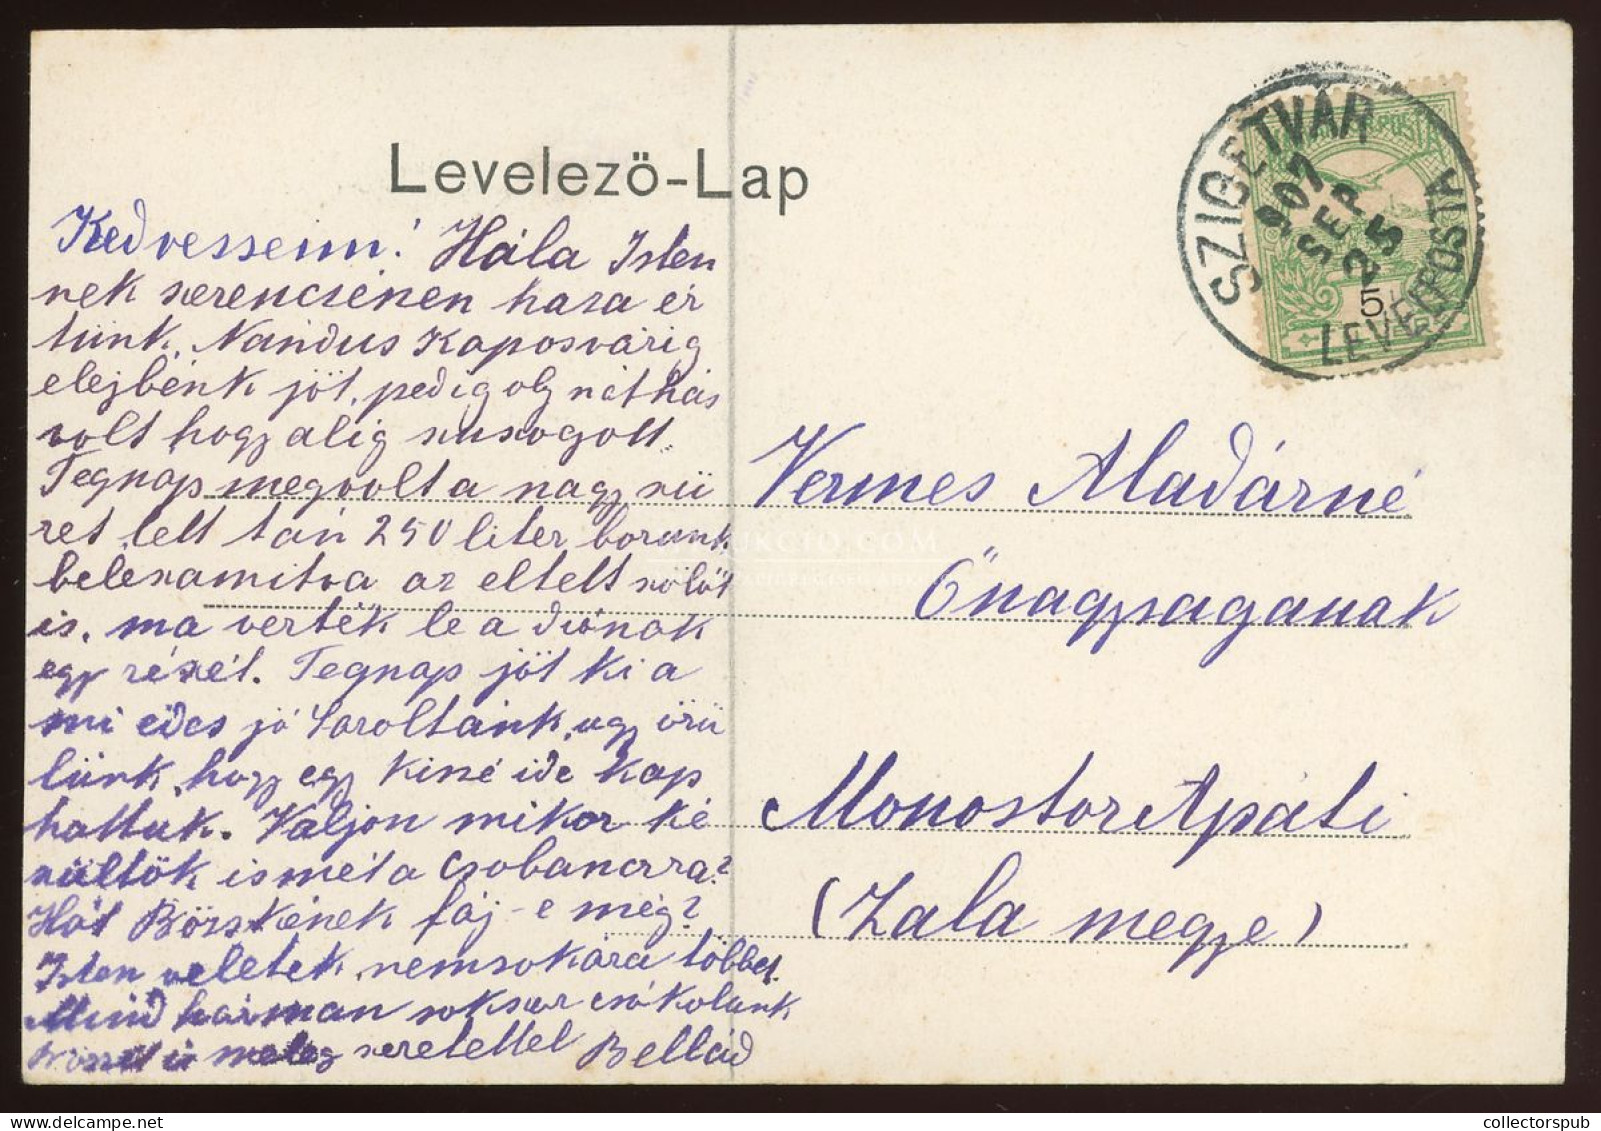 Levelező-Lap
SZIGETVÁR
907
SEP
25
LEVELPOSTA
5
Kedvesseim! Hála Isten
nek szerencsénen haza ér
tünk, Nándus Kaposvárig
elejbénk jöt, pedig oly náthás
volt hogy alig suxogott.
Tegnap megvolt a nagy szü
ret lett tán 250 liter borunk
beleszamitva az eltett szölöt
is. ma verték le a diónak
egy részét. Tegnap jöt ki a
mi edes jó Saroltánk, ugy örü
lünk, hogy egy kiné ide kap
hattuk. Valjon mikor ké
szültök ismét a Csobancrra?
Hát Börskének fáj-e még?
Isten veletek, nemsokára többet.
Mind hárman sokszor csókolunk
meleg szeretettel Bellád
Vermes Aladárné
Őnagysaganak
Monostor Apáti
(Zala megye)
collectorspub